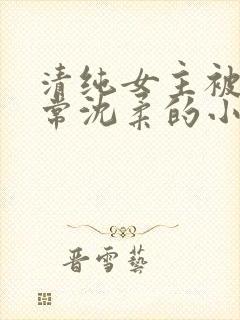 清纯女主被
常沈柔的小
晋雪艺